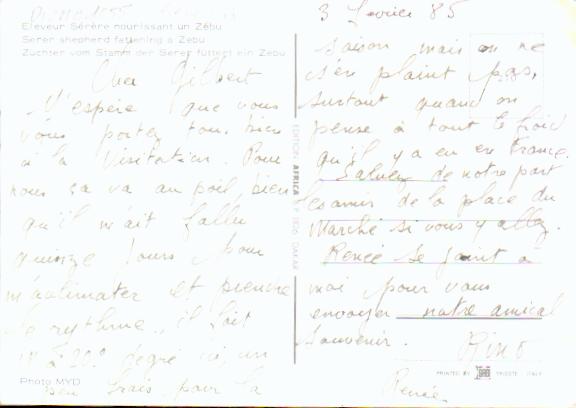 3 Fevrier 85
Eleveur Sérère nourissant un Zébu
Serer shepherd fattening a Zebu
Züchter vom Stamm der Serer füttert ein Zebu
Cher Gilbert
J'espère que vous
vous portez tous bien
à la Visitation. Pour
nous ça va au poil, bien
qu'il m'ait fallu
quinze jours pour
m'acclimater et prendre
le rythme, il fait
à 22° degré ici, un
peu frais pour la
saison mais on ne
s'en plaint pas,
surtout quand on
pense à tout le froid
qu'il y a eu en France.
Saluez de notre part
les amis de la place du
Marché si vous y allez.
Renée se joint à
moi pour vous
envoyer notre amical
souvenir.
Rino
Renée
EDITION AFRICA DAKAR
Photo MYD
PRINTED BY TRIESTE ITALY